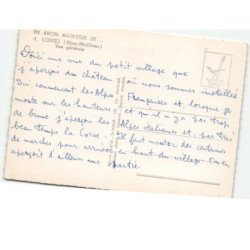 EN AVION AU-DESSUS DE ...
4. CONTES (Alpes-Maritimes)
Vue générale
Voici une vue du petit village que
j'aperçois du château où nous sommes installés
Ici commencent les Alpes Françaises et, lorsque je
monte sur les hauteurs et qu'il n'y a pas trop
de brume j'aperçois les Alpes italiennes et par très
beau temps la Corse. Il faut monter des centaines
de marches pour arriver en haut du village. On en
aperçoit d'ailleurs une partie